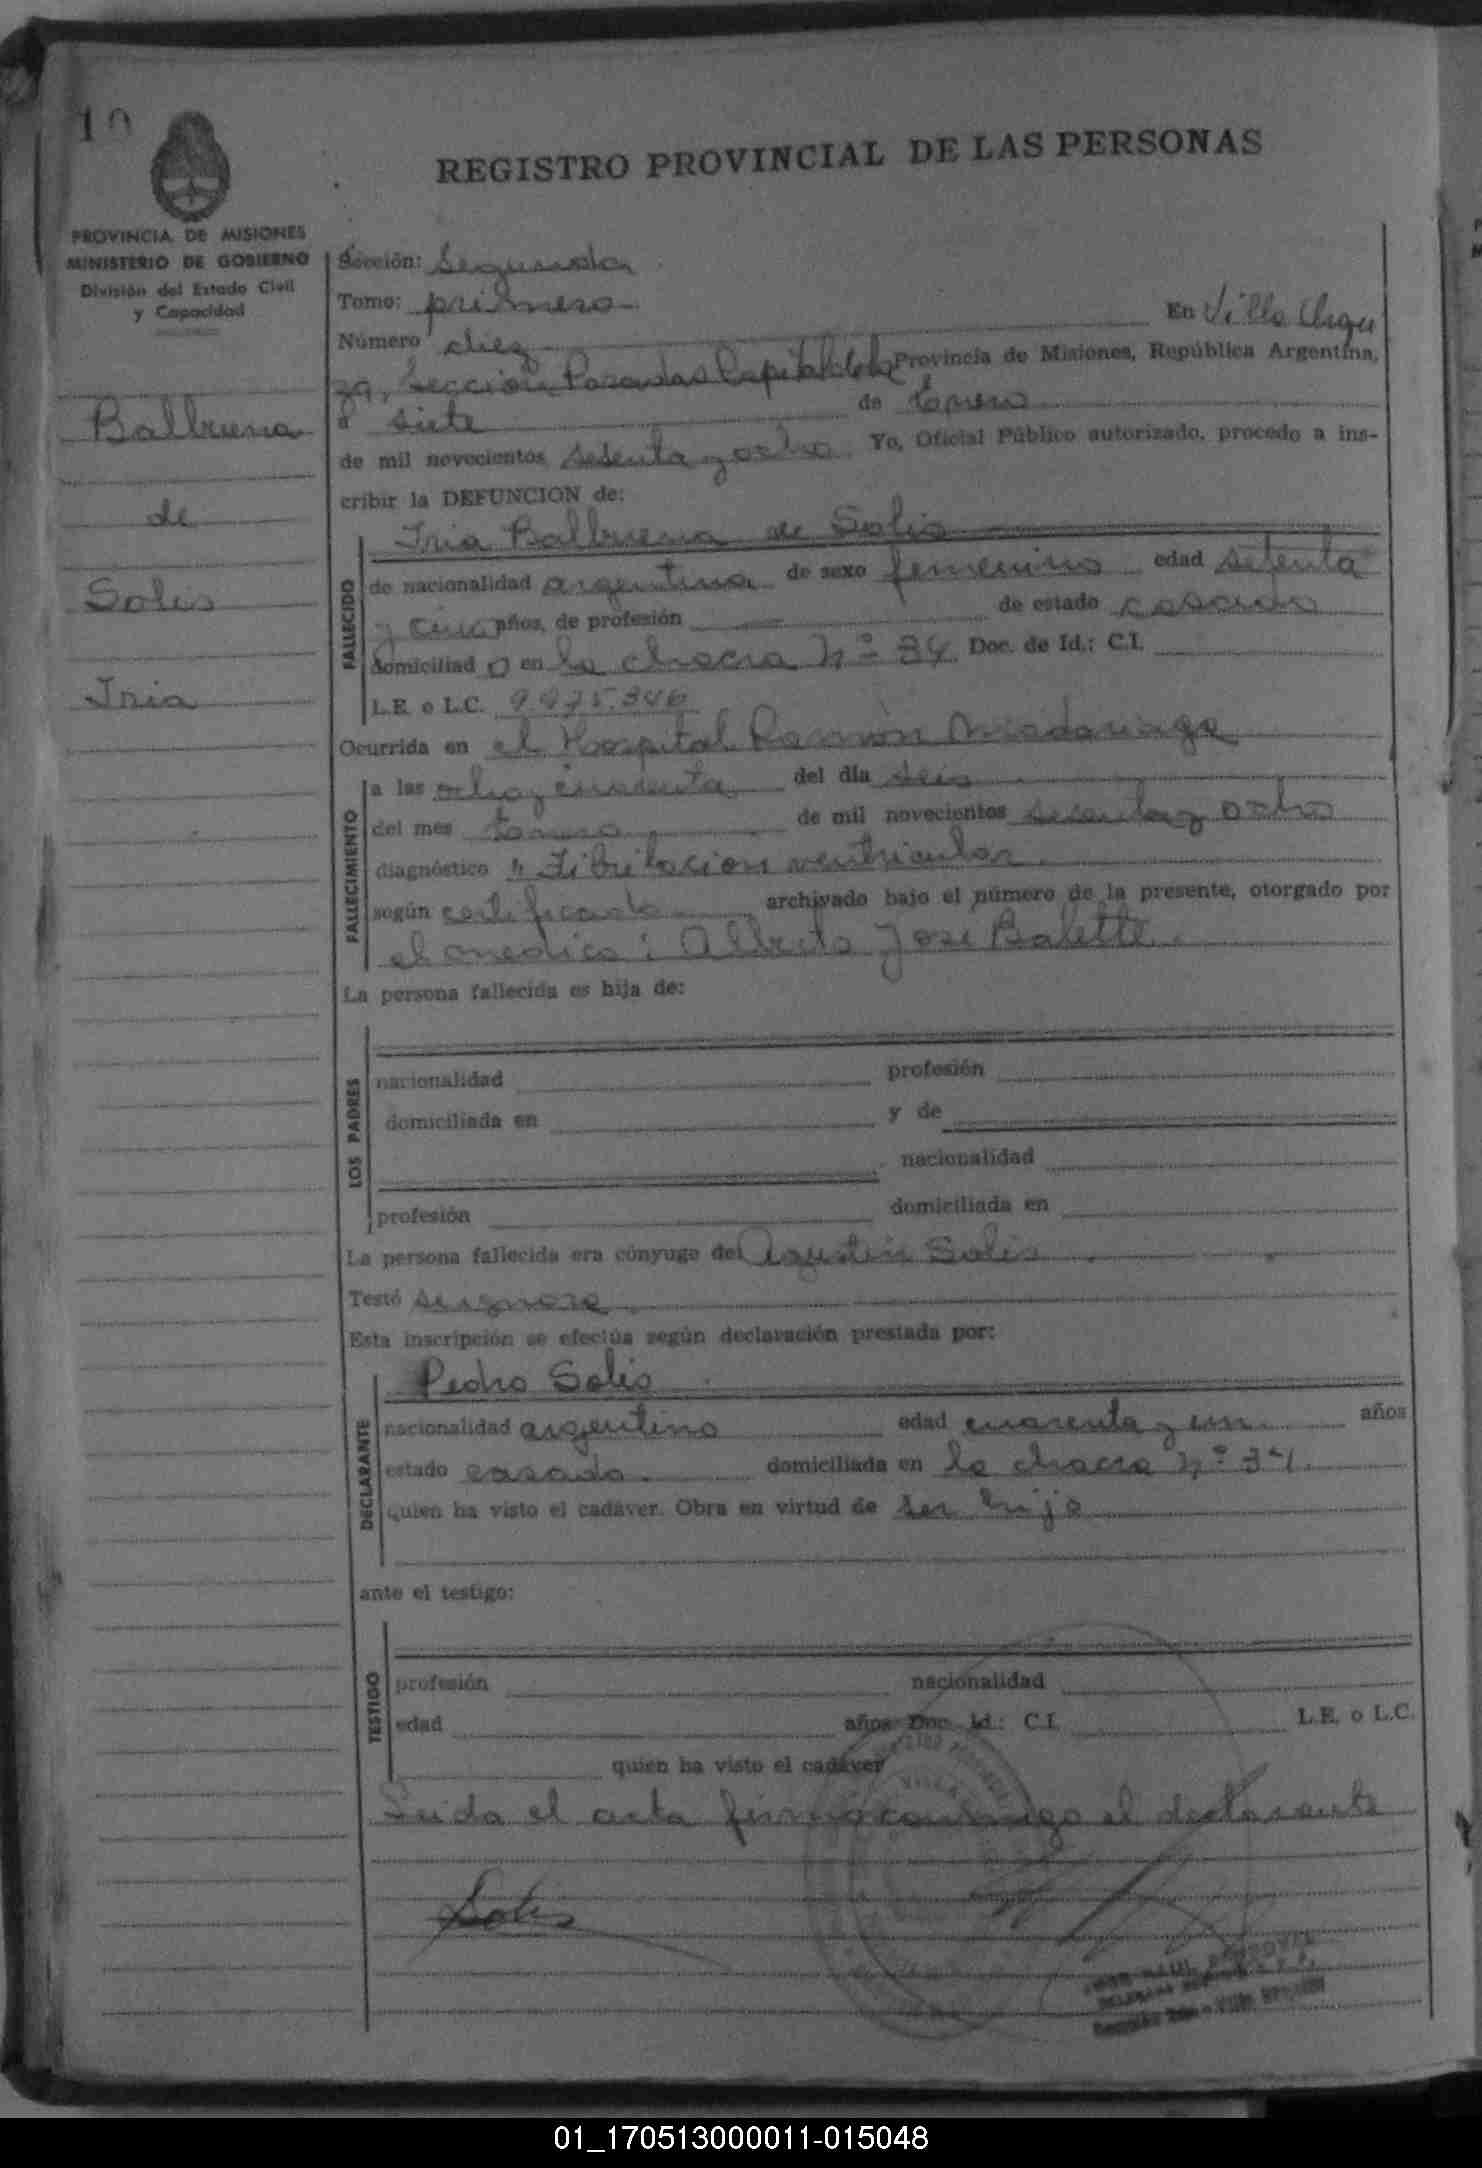 10
REGISTRO PROVINCIAL DE LAS PERSONAS
PROVINCIA DE MISIONES
MINISTERIO DE GOBIERNO
División del Estado Civil
y Capacidad
Balbuena
de
Solis
Iria
Sección: Segunda
Tomo: primero
Número diez En Villa Urqui
za, Sección Posadas Capital de la Provincia de Misiones, República Argentina,
a siete de Enero
de mil novecientos sesenta y ocho Yo, Oficial Público autorizado, procedo a ins-
cribir la DEFUNCION de:
FALLECIDO
Iria Balbuena de Solis
de nacionalidad argentina de sexo femenino edad setenta
y cinco años, de profesión de estado casada
domiciliad o en la chacra Nº 34 Doc. de Id.: C.I.
L.E. o L.C. 9.975.346
Ocurrida en el Hospital Ramón Madariaga
FALLECIMIENTO
a las ocho y cincuenta del día seis
del mes Enero de mil novecientos sesenta y ocho
diagnóstico "Fibrilacion ventricular
según certificado archivado bajo el número de la presente, otorgado por
el medico: Alberto Jose Balette.
La persona fallecida es hija de:
LOS PADRES
nacionalidad profesión
domiciliada en y de
nacionalidad
profesión domiciliada en
La persona fallecida era cónyuge de Agustin Solis
Testó se ignora
Esta inscripción se efectúa según declaración prestada por:
DECLARANTE
Pedro Solis
nacionalidad argentino edad cuarenta y un años
estado casado. domiciliada en la chacra Nº 34.
quien ha visto el cadáver. Obra en virtud de ser hijo
ante el testigo:
TESTIGO
profesión nacionalidad
edad años Doc. Id.: C.I. L.E. o L.C.
quien ha visto el cadáver
Leida el acta firmó conmigo el declarante
Solis
01_170513000011-015048